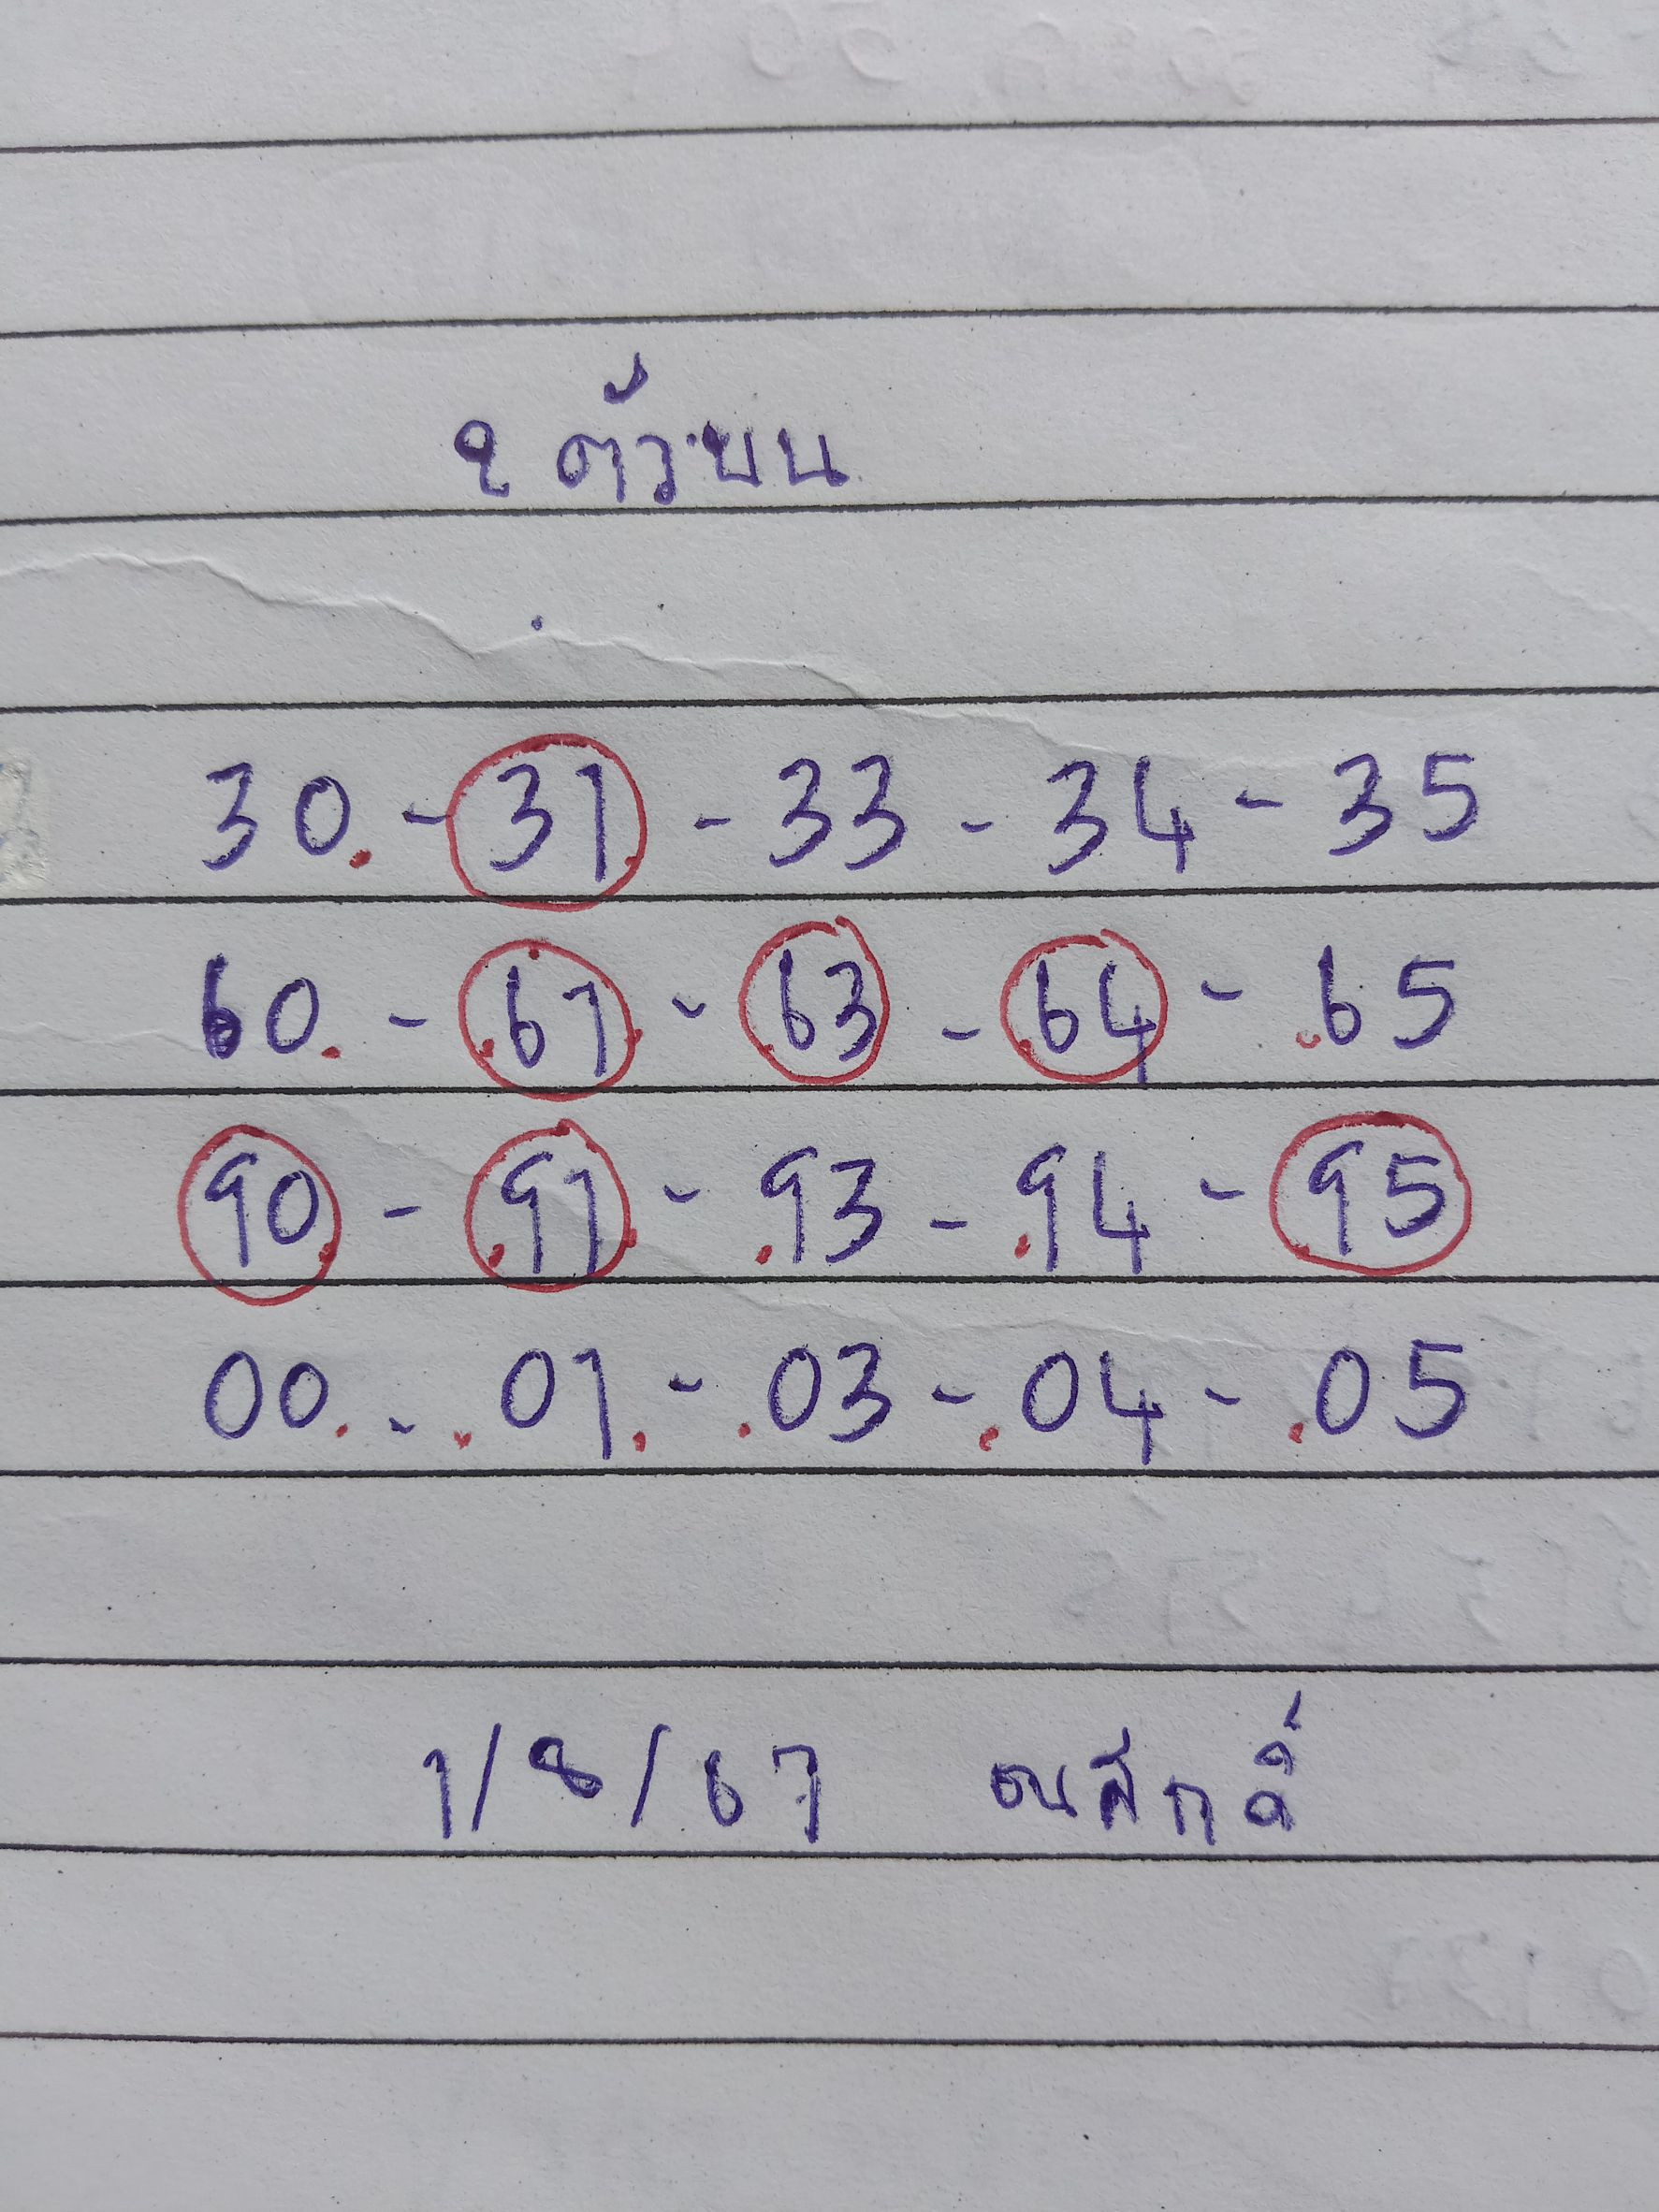 2 ตัวบน
30. - 31 - 33 - 34 - 35
60. - 61 - 63 - 64 - 65
90 - 91 - 93 - 94 - 95
00. - 01 - 03 - 04 - 05
1/8/67